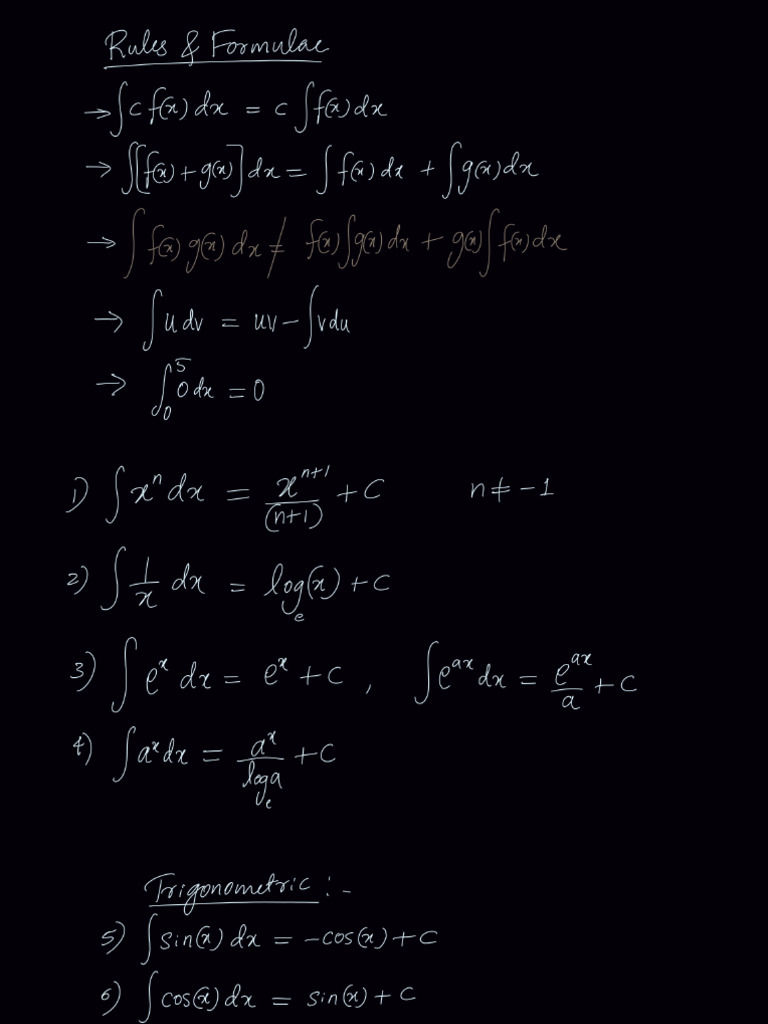 Rules & Formulae
→ ∫c f(x) dx = c ∫f(x) dx
→ ∫[f(x) + g(x)] dx = ∫f(x) dx + ∫g(x) dx
→ ∫f(x) g(x) dx ≠ f(x)∫g(x) dx + g(x)∫f(x) dx
→ ∫u dv = uv - ∫v du
→ ∫₀⁵ 0 dx = 0
1) ∫xⁿ dx = xⁿ⁺¹/(n+1) + C n ≠ -1
2) ∫1/x dx = logₑ(x) + C
3) ∫eˣ dx = eˣ + C , ∫e^{ax} dx = e^{ax}/a + C
4) ∫aˣ dx = aˣ/logₑa + C
Trigonometric :-
5) ∫sin(x) dx = -cos(x) + C
6) ∫cos(x) dx = sin(x) + C